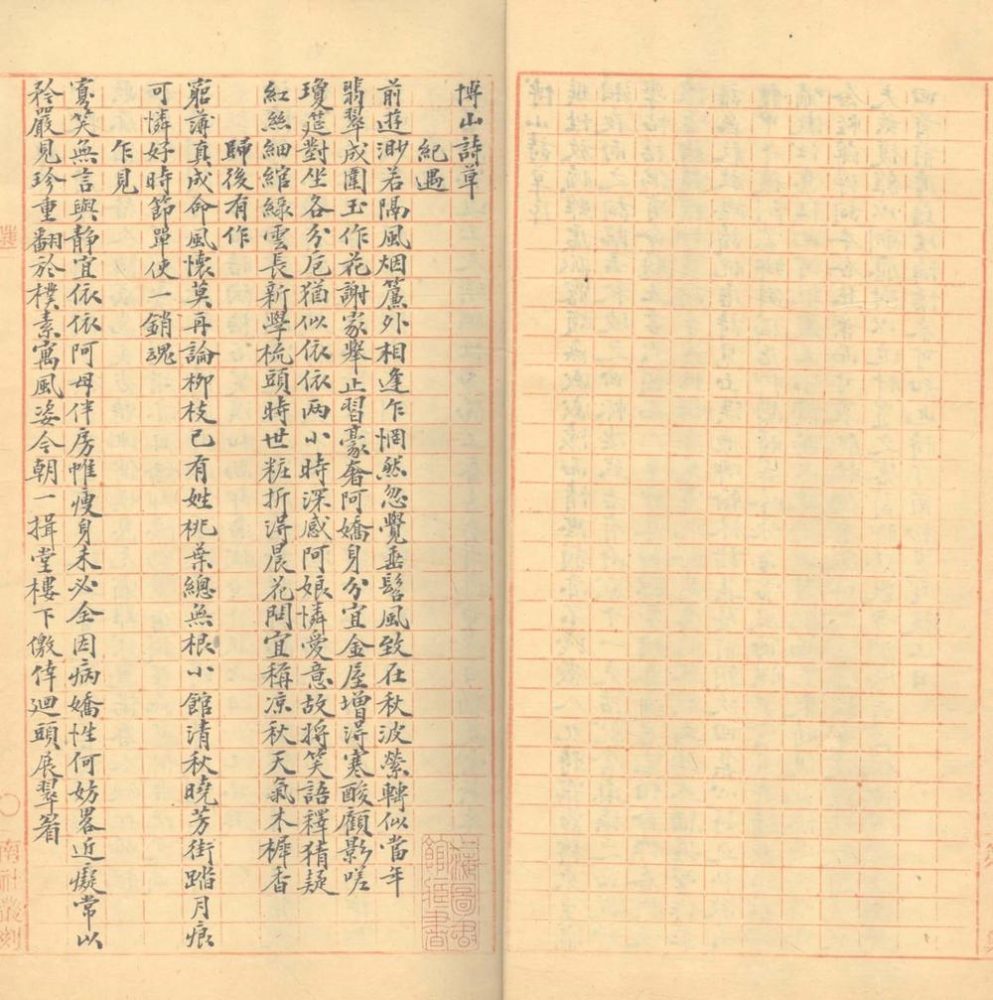 博山詩草
紀遇
前遊渺若隔風烟簾外相逢乍惘然忽覺垂髫風致在秋波縈轉似當年
翡翠成圍玉作花謝家舉止習豪奢阿嬌身分宜金屋增淂寒酸顧影嗟
瓊筵對坐各分卮猶似依依两小時深感阿娘憐愛意故將笑語釋猜疑
紅絲細綰綠雲長新學梳頭時世粧折淂晨花問宜稱凉秋天氣木樨香
歸後有作
窮薄真成命風懷莫再論柳枝已有姓桃葉總無根小館清秋曉芳街踏月痕
可憐好時節單使一銷魂
乍見
寡笑無言與靜宜依依阿母伴房帷瘦身未必全因病嬌性何妨畧近癡常以
矜嚴見珍重翻於樸素寓風姿今朝一揖堂樓下儌倖廻頭展翠眉
上海圖書館藏書
南社叢刻